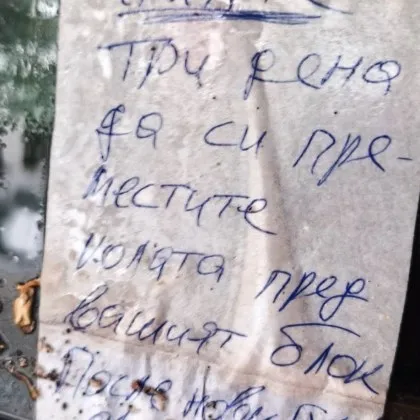 Три дена
да си пре-
местите
колата пред
вашият блок
После